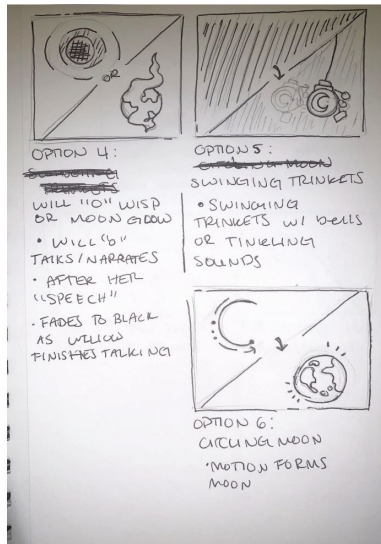 OR
OPTION 4:
WILL "O" WISP
OR MOON GLOW
• WILL "O"
TALKS/NARRATES
• AFTER HER
"SPEECH"
• FADES TO BLACK
AS WILLOW
FINISHES TALKING
OPTION 5:
CIRCLING MOON
SWINGING TRINKETS
• SWINGING
TRINKETS w/ bells
OR TINKLING
SOUNDS
OPTION 6:
CIRCLING MOON
• MOTION FORMS
MOON